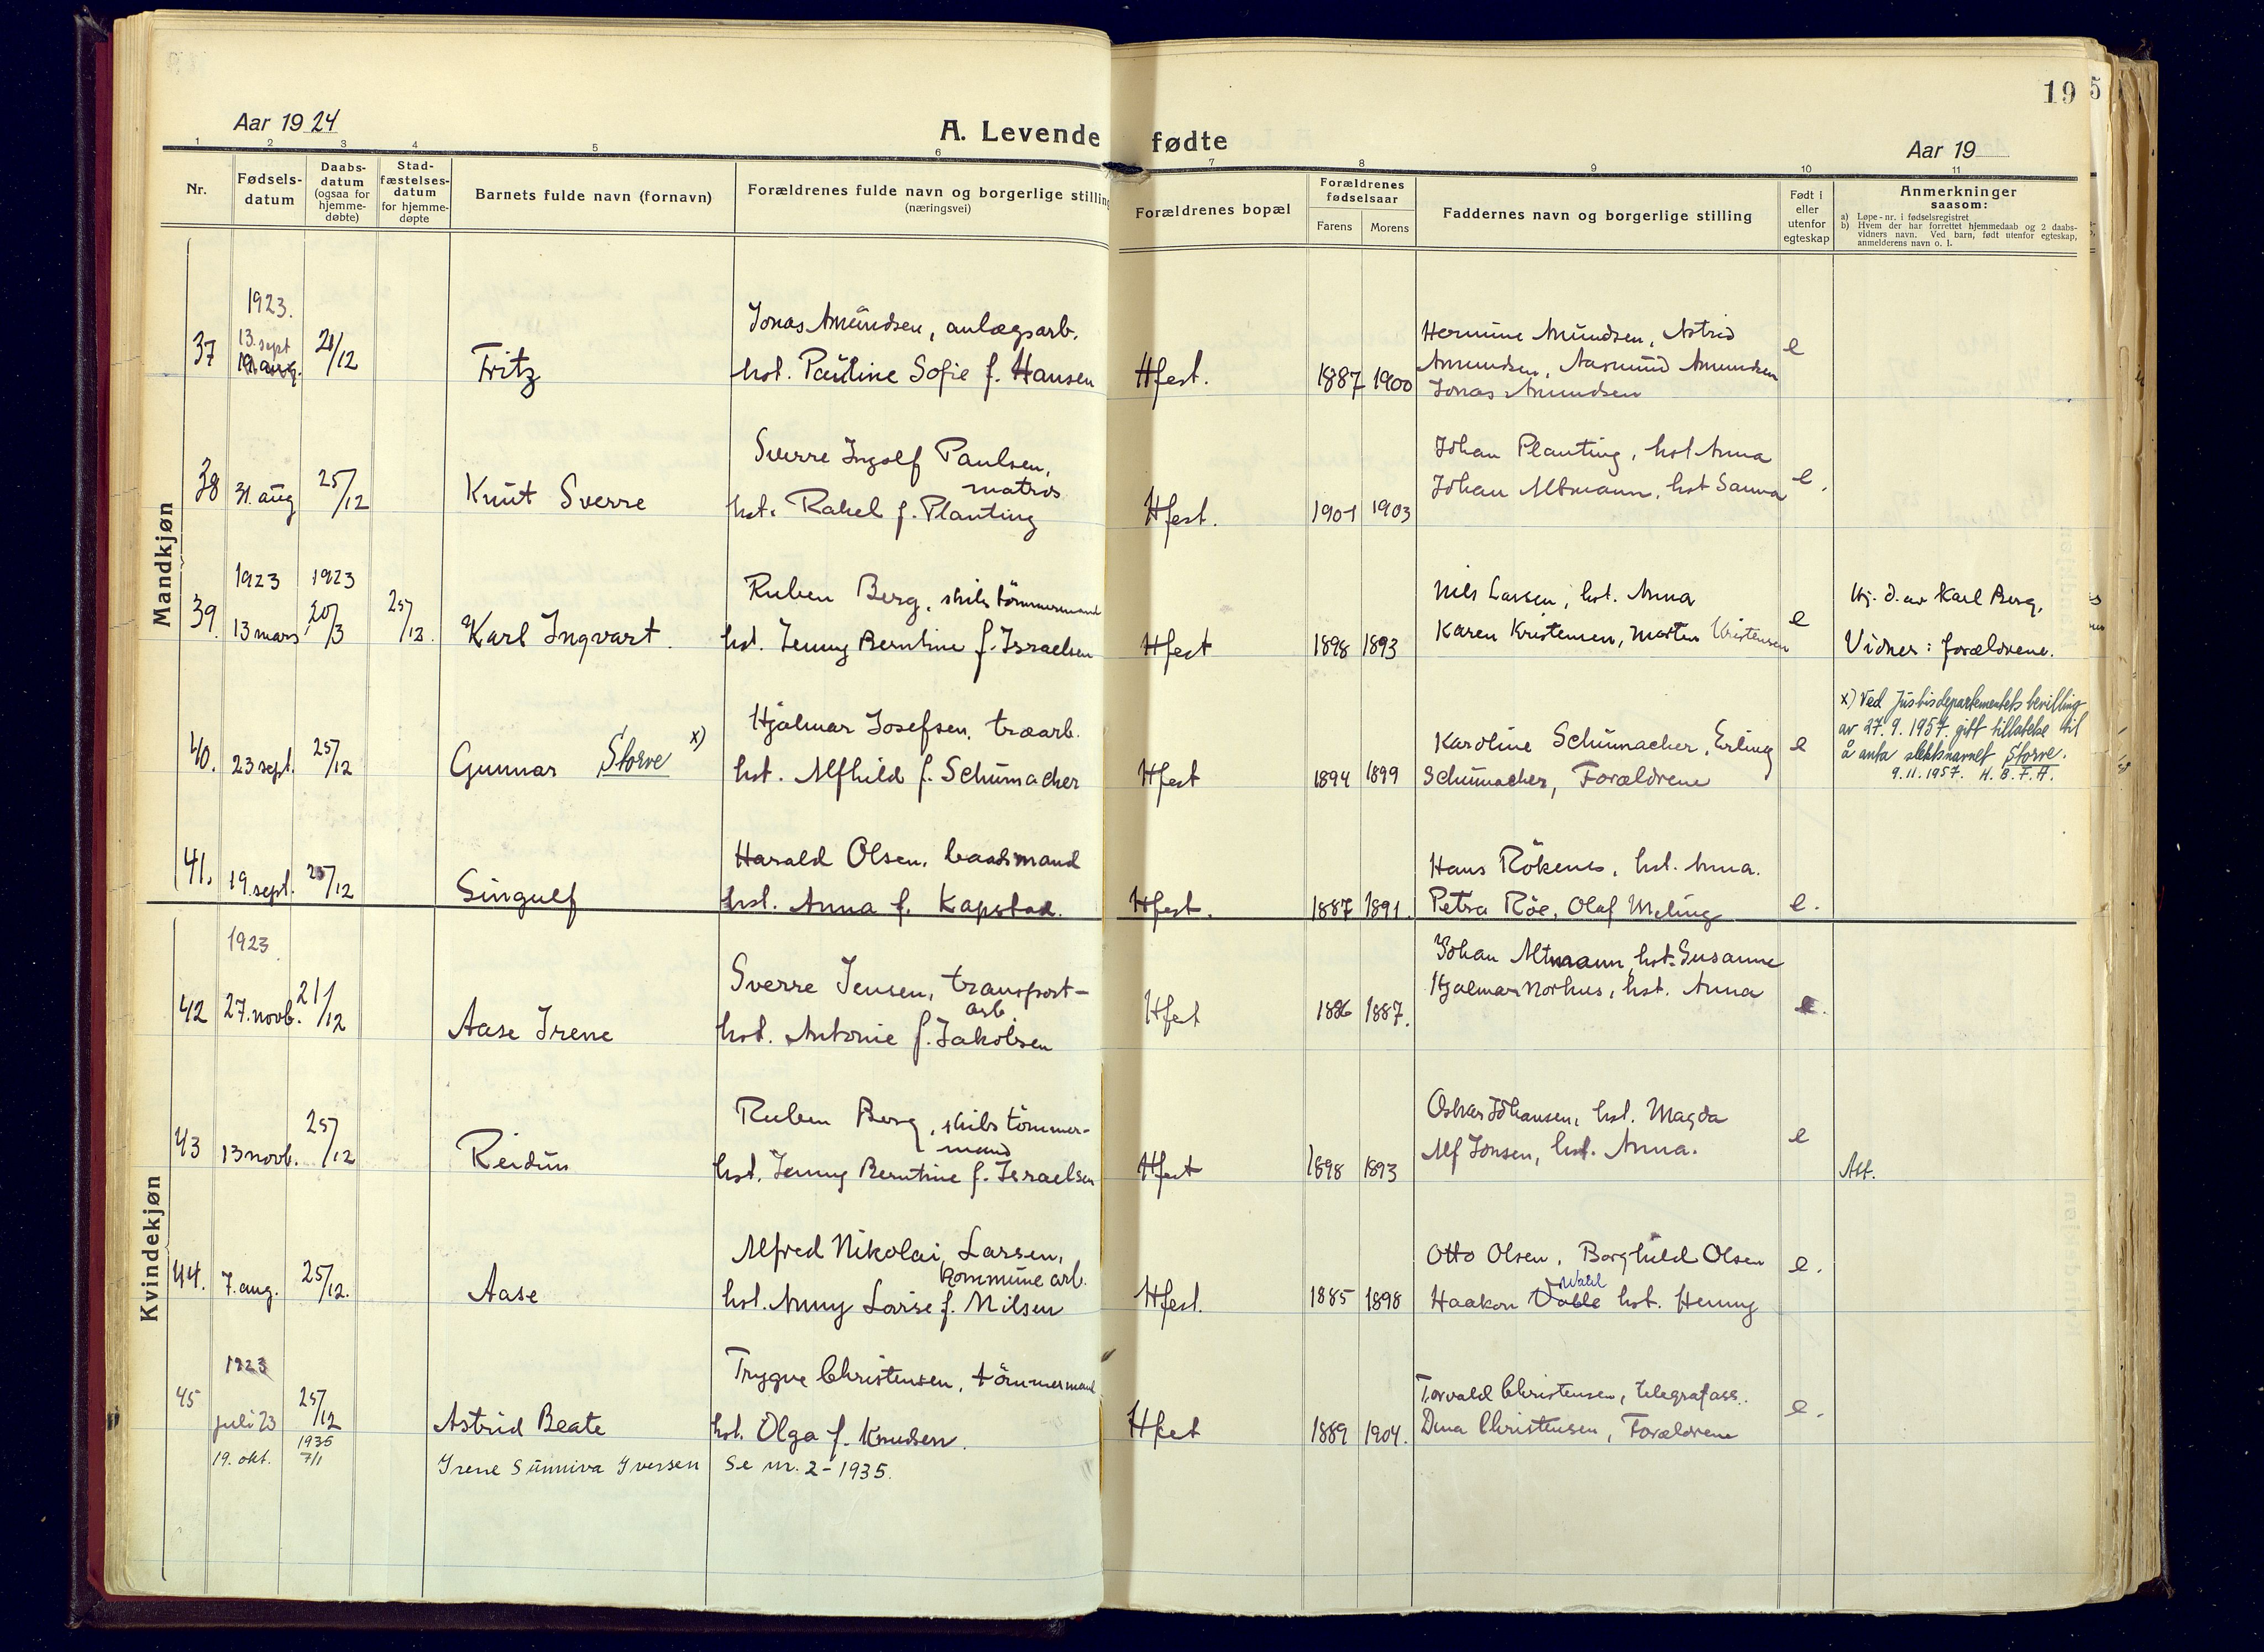 Aar 1924
A. Levende fødte
Aar 19
19
5
1 2 3 4 5 6 7 8 9 10 11
Nr.
Fødsels-
datum
Daabs-
datum
(ogsaa for
hjemme-
døbte)
Stad-
fæstelses-
datum
for hjemme-
døpte
Barnets fulde navn (fornavn)
Forældrenes fulde navn og borgerlige stilling
(næringsvei)
Forældrenes bopæl
Forældrenes
fødselsaar
Farens Morens
Faddernes navn og borgerlige stilling
Født i
eller
utenfor
egteskap
Anmerkninger
saasom:
a) Løpe-nr. i fødselsregistret
b) Hvem der har forrettet hjemmedaab og 2 daabs-
vidners navn. Ved barn, født utenfor egteskap,
anmelderens navn o. l.
Mandkjøn
1923.
37 13. sept 21/12 Fritz
Jonas Amundsen, anlægsarb.
hst. Pauline Sofie f. Hansen
Hfest. 1887 1900
Hermine Amundsen, Astrid
Amundsen, Aasmund Amundsen
Jonas Amundsen
e
38 31. aug 25/12 Knut Sverre
Sverre Ingolf Paulsen,
matros
hst. Rakel f. Planting
Hfest. 1901 1903
Johan Planting, hst Anna
Johan Altmann, hst Sanna
e.
1923 1923
39. 13 mars 20/3 25/12. Karl Ingvart.
Ruben Berg, skibstömmermand
hst. Jenny Berntine f. Israelsen
Hfest 1898 1893
Nils Larsen, hst. Anna
Karen Kristensen, Morten Kristensen
e
Hj. d. av Karl Berg,
Vidner: forældrene.
40. 23 sept. 25/12 Gunnar Storve x)
Hjalmar Josefsen, træarb.
hst. Alfhild f. Schumacher
Hfest 1894 1899
Karoline Schumacher, Erling
Schumacher, Forældrene
e
x) Ved Justisdepartementets bevilling
av 27.9.1957. gitt tillatelse til
å anta slektsnavnet Storve.
9.11.1957. H.B.F.A.
41. 19. sept. 25/12 Singulf
Harald Olsen, baadsmand
hst. Anna f. Kapstad.
Hfest. 1887 1891.
Hans Rökenes, hst. Anna.
Petra Röe, Olaf Meling
e.
Kvindekjøn
1923
42 27. novb. 21/12 Aase Irene
Sverre Jensen, transport-
arb.
hst. Antonie f. Jakobsen
Hfest 1886 1887.
Johan Altmann, hst. Susanne
Hjalmar Norhus, hst. Anna
e.
43 13 novb. 25/12 Reidun
Ruben Berg, skibstömmer-
mand
hst. Jenny Berntine f. Israelsen
Hfest 1898 1893
Oskar Johansen, hst. Magda
Alf Jonsen, hst. Anna.
e
Att.
44. 7. aug. 25/12. Aase
Alfred Nikolai Larsen,
kommunearb.
hst. Anny Lovise f. Nilsen
Hfest. 1885 1898
Otto Olsen, Borghild Olsen
Wahl
Haakon Vahle hst. Henny
e.
1923
45 juli 23 25/12 Astrid Beate
Trygve Christensen, tömmermand
hst. Olga f. Knudsen.
Hfest 1889 1904.
Torvald Christensen, telegrafass.
Dina Christensen, Forældrene
e.
1935
19. okt. 7/1 Irene Sunniva Iversen Se nr. 2 - 1935.